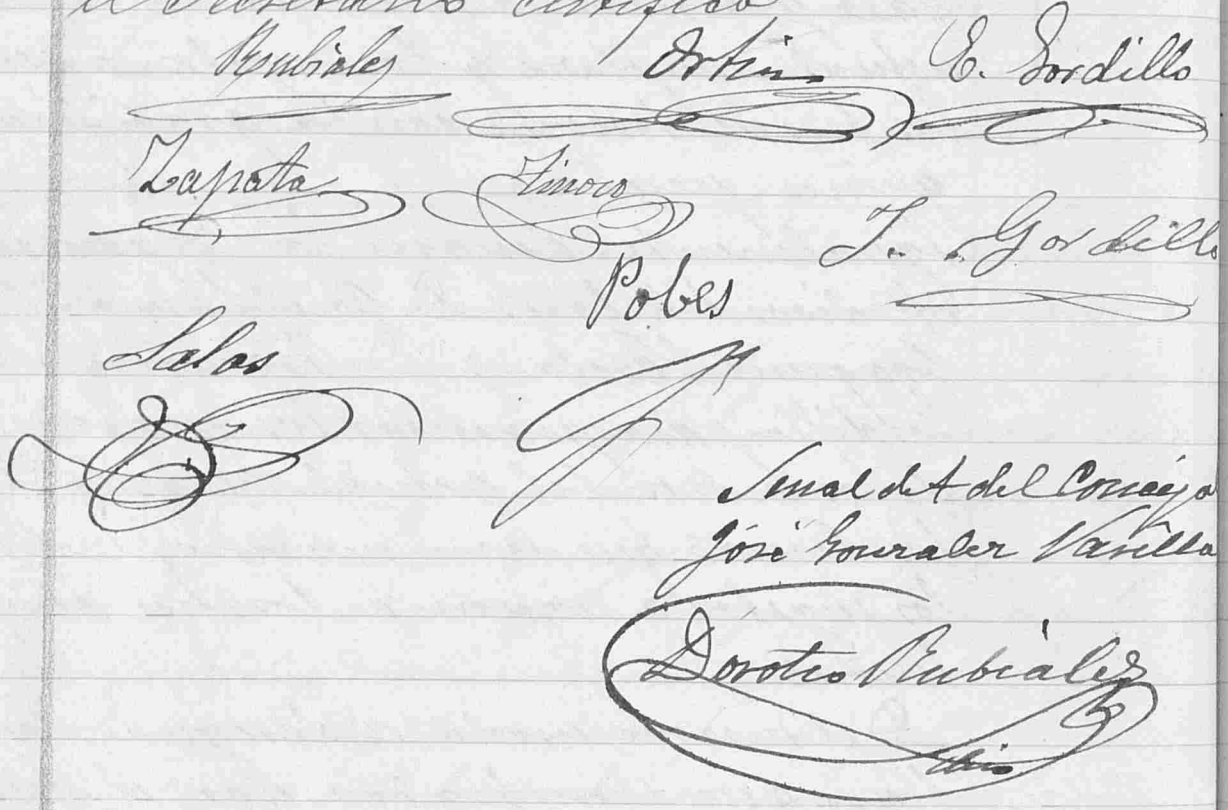 el Secretario certifico
Rubiales Ortiz E. Gordillo
Zapata Tinoco J. Gordillo
Pobes
Salas
Señal de + del Concejo
José Gonzalez Varilla
Doroteo Rubiales
Srio